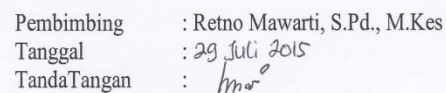 Pembimbing : Retno Mawarti, S.Pd., M.Kes
Tanggal : 29 Juli 2015
TandaTangan :